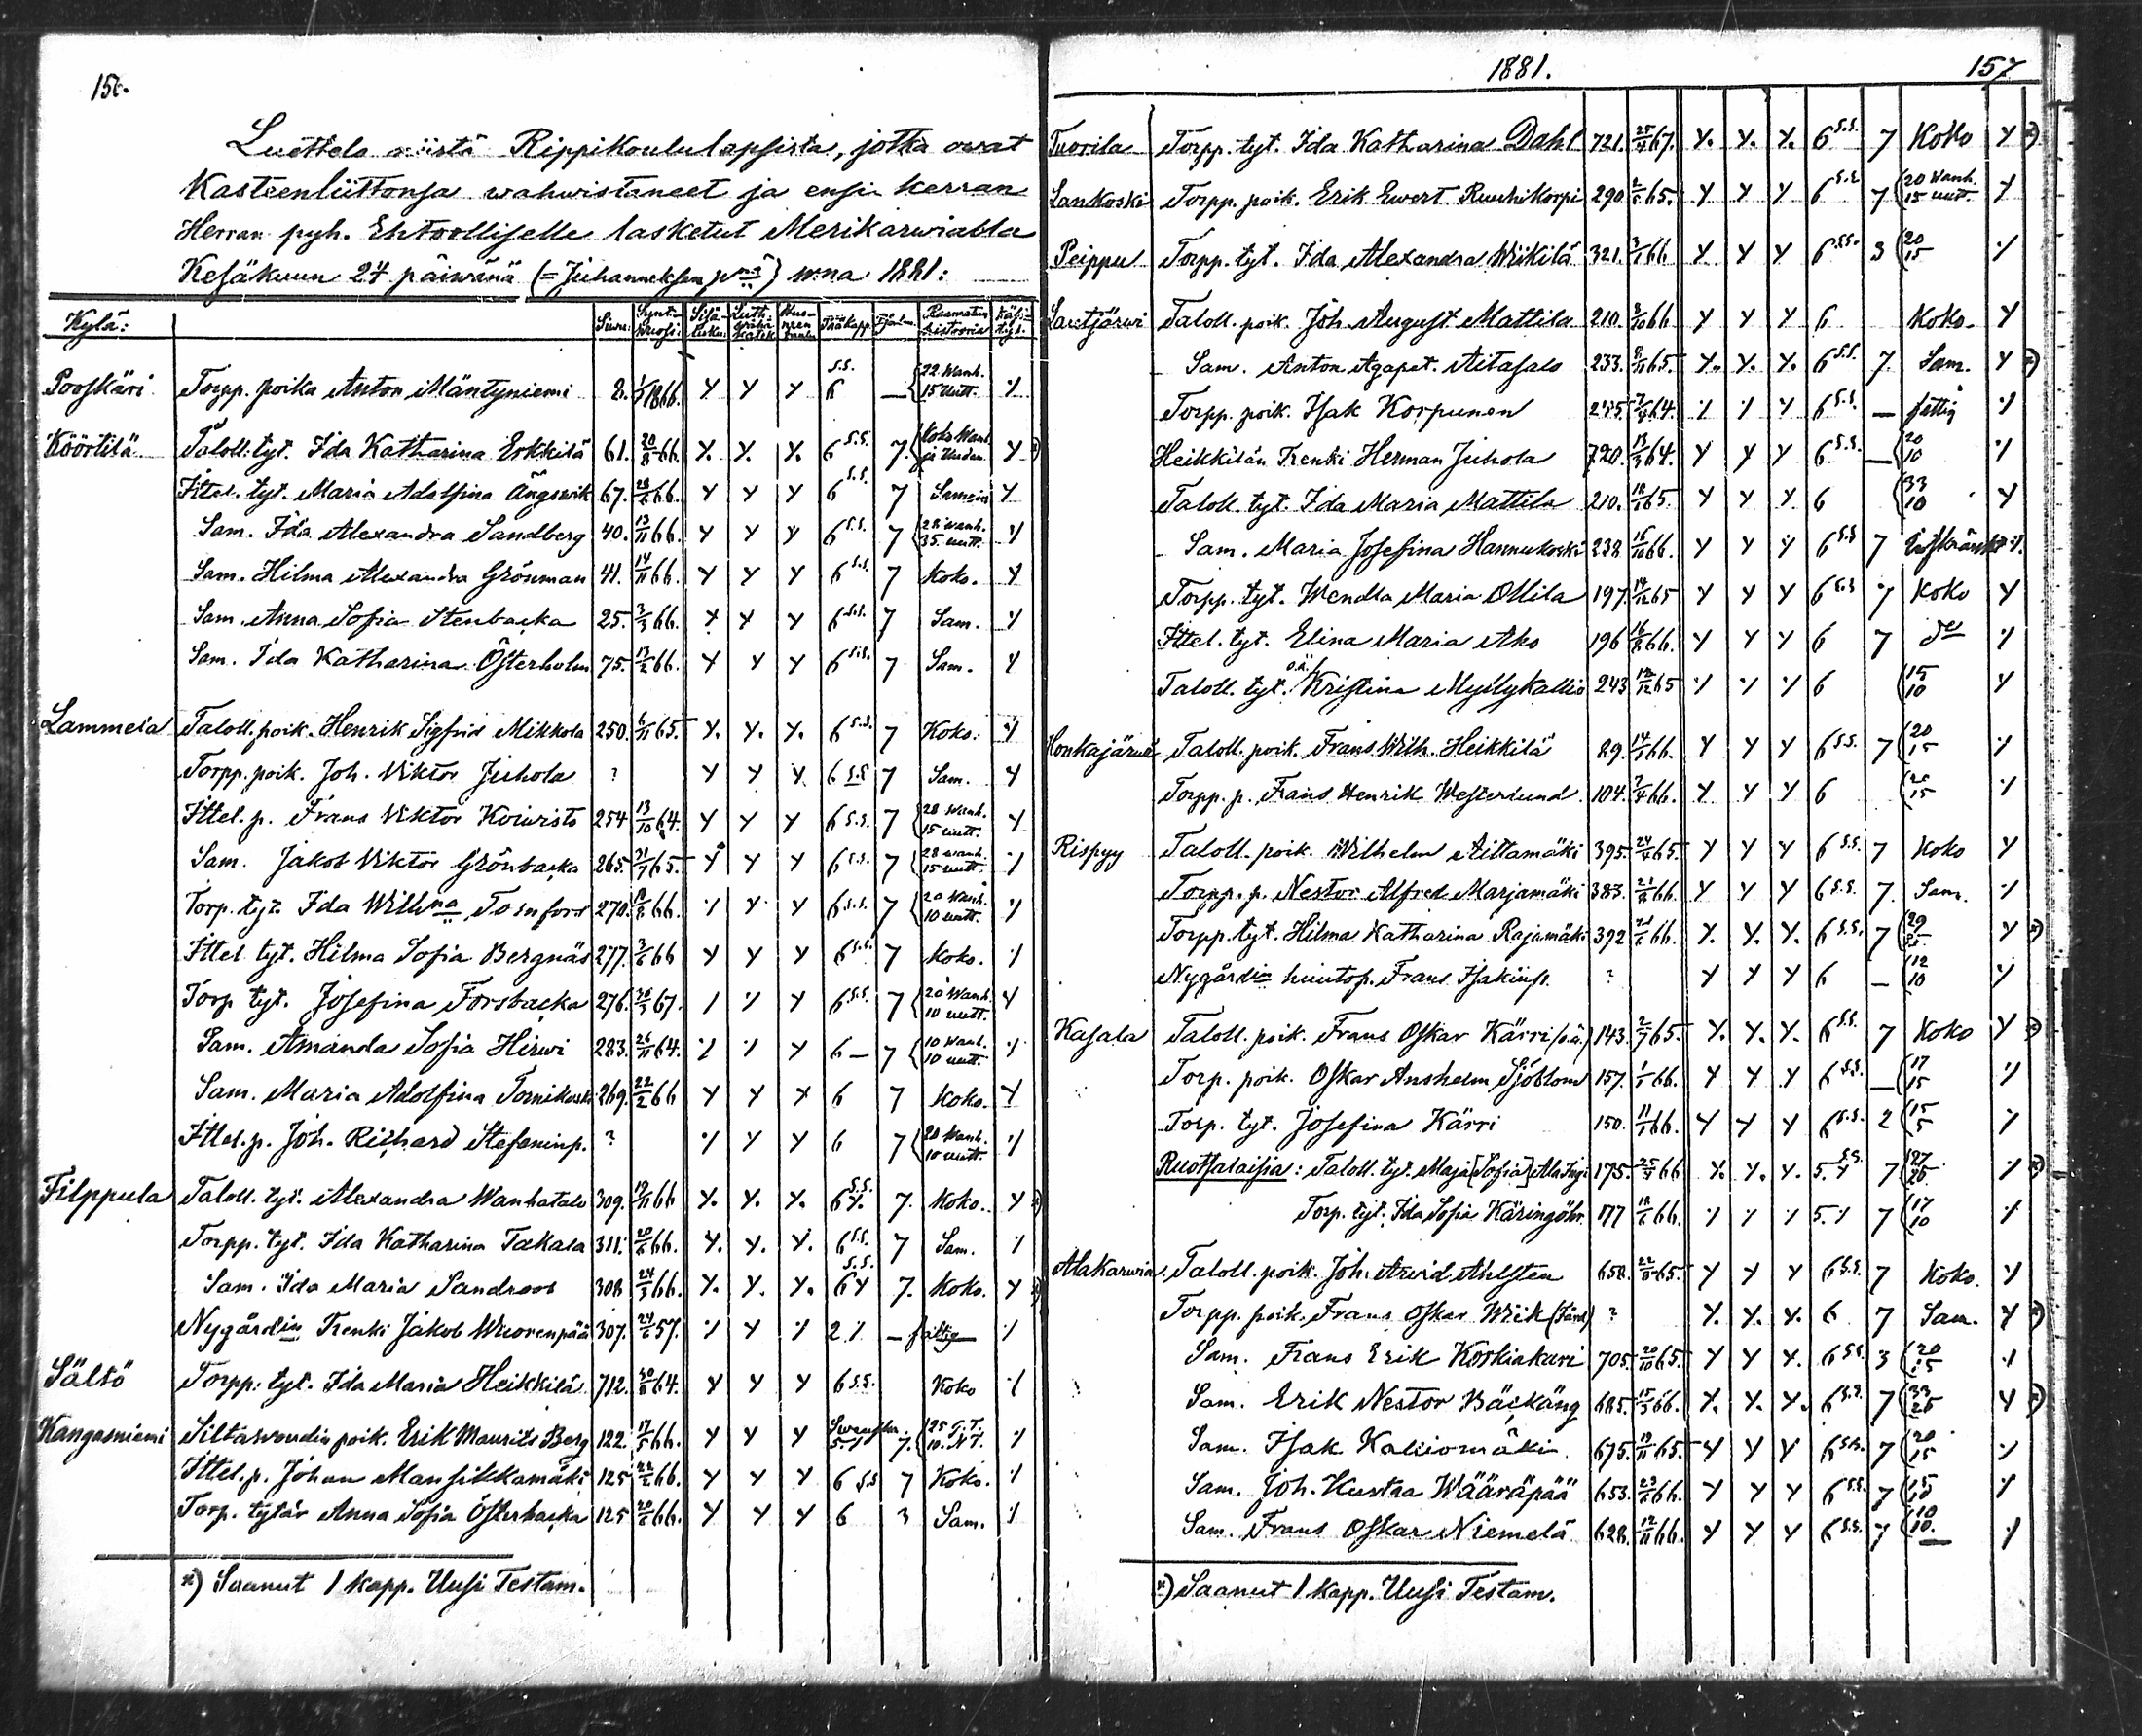 156.
Luettelo niistä Rippikoululapsista, jotka owat
Kasteenliittonsa wahwistaneet ja ensi kerran
Herran pyh. Ehtoolliselle lasketut Merikarwialla
Kesäkuun 24 päiwänä (= Juhanneksen pnä) wna 1881:
Kylä: Siwu: Synt. wuosi: Sisä-luku: Pääkapp. Raamatun historia
Pooskäri Torpp. poika Anton Mäntyniemi 2. 1866. Y Y Y 6 s.s. — 22 Wanh. 15 Uutt. ·/.
Köörtilä Taloll. tyt. Ida Katharina Erkkilä 61. 20/8 66. Y. Y. Y. 6 s.s. 7. Koko Wanh. ja Uuden Y *)
Ittel. tyt. Maria Adolfina Ängswik 67. 28/6 66. Y Y Y 6 s.s. 7 Samoin Y
Sam. Ida Alexandra Sandberg 40. 13/11 66. Y Y Y 6 s.s. 7 28 wanh. 35 uutt. Y
Sam. Hilma Alexandra Grönman 41. 14/11 66. Y Y Y 6 s.s. 7 Koko. Y
Sam. Anna Sofia Stenbacka 25. 3/3 66. Y Y Y 6 s.s. 7 Sam. Y
Sam. Ida Katharina Österholm 75. 13/2 66. Y Y Y 6 s.s. 7 Sam. Y
Lammela Taloll. poik. Henrik Sigfrid Mikkola 250. 6/11 65. Y. Y. Y. 6 s.s. 7 Koko. Y
Torpp. poik. Joh. Viktor Juhola ? Y Y Y 6 s.s 7 Sam. Y
Ittel. p. Frans Viktor Koiwisto 254 13/10 64. Y Y Y 6 s.s. 7 28 Wanh. 15 uutt. Y
Sam. Jakob Viktor Grönbacka 265. 31/7 65. Y Y Y 6 s.s. 7 28 wanh. 15 uutt. ·/.
Torp. tyt. Ida Willina Tornfors 270. 66. ·/. Y Y 6 s.s. 7 20 Wanh. 10 uutt. ·/.
Ittel tyt. Hilma Sofia Bergnäs 277. 3/6 66 Y Y Y 6 s.s. 7 Koko. ·/.
Torp tyt. Josefina Forsbacka 276. 67. / ·/. Y 6 s.s. 7 20 Wanh. 10 uutt. Y
Sam. Amanda Sofia Hirwi 283. 26/11 64. ·/. ·/. Y 6 — 7 10 Wanh. 10 uutt. ·/.
Sam. Maria Adolfina Tornikoski 269. 22/2 66 Y Y Y 6 7 Koko. Y
Ittel. p. Joh. Richard Stefaninp. ? ·/. Y Y 6 7 20 Wanh. 10 uutt. ·/.
Filppula Taloll. tyt. Alexandra Wanhatalo 309. 19/11 66 Y. Y. Y. 6 Y. s.s. 7. Koko. Y *)
Torpp. tyt. Ida Katharina Takala 311. 20/6 66. Y. Y. Y. 6 s.s. 7 Sam. ·/.
Sam. Ida Maria Sandroos 308 24/3 66. Y. Y. Y. 6 Y s.s. 7. Koko. Y *)
Nygårdin Trenki Jakob Wuorenpää 307. 24/6 57. ·/. Y ·/. 2 ·/. — fattig ·/.
Sältö Torpp. tyt. Ida Maria Heikkilä 712. 64. Y Y Y 6 s.s. Koko ·/.
Kangasniemi Siltawoudin poik. Erik Maurits Berg 122. 17/5 66. Y Y Y 7. 25 G.T. 10. N T. ·/.
Ittel. p. Johan Mansikkamäki 125 22/2 66. Y Y Y 6 s.s 7 Koko. ·/.
Torp. tytär Anna Sofia Österbacka 125 20/6 66. Y Y Y 6 3 Sam. ·/.
*) Saanut 1 kapp. Uusi Testam.
1881. 157
Tuorila Torpp. tyt. Ida Katharina Dahl 721. 25/4 67. Y. Y. Y. 6 s.s. 7 Koko Y *)
Lankoski Torpp. poik. Erik Ewert Ruuhikorpi 290. 65. Y Y Y 6 s.s. 7 20 Wanh. 15 uutt. Y
Peippu Torpp. tyt. Ida Alexandra Wiikilä 321. 66 Y Y Y 6 s.s. 3 20 15 ·/.
Lautjärwi Taloll. poik. Joh. August Mattila 210. 66 Y Y Y 6 Koko. Y
Sam. Anton Agapet. Aitasalo 233. 65. Y. Y. Y. 6 s.s. 7. Sam. Y *)
Torpp. poik. Isak Korpunen 64. ·/. ·/. Y 6 s.s. — fattig ·/.
Heikkilän Trenki Herman Juhola 720. 13/3 64. Y Y Y 6 s.s. — 20 10 ·/.
Taloll. tyt. Ida Maria Mattila 210. 65. Y Y Y 6 33 10 Y
Sam. Maria Josefina Hannukoski 238 16/10 66. Y Y Y 6 s.s 7 ·/.
Torpp. tyt. Wendla Maria Ollila 197. 14/12 65 Y Y Y 6 s.s 7 Koko Y
Ittel. tyt. Elina Maria Aho 196 16/8 66. Y Y Y 6 7 do ·/.
Taloll. tyt. o.ä. Kristina Myllykallio 243 65 ·/. ·/. ·/. 6 15 10 Y
Honkajärwi Taloll. poik. Frans Wilh. Heikkilä 89. 14/1 66. Y Y Y 6 s.s. 7 20 15 ·/.
Torpp. p. Frans Henrik Westerlund 104. 7/4 66. Y Y Y 6 20 15 ·/.
Rispyy Taloll. poik. Wilhelm Aittamäki 395. 24/4 65. Y Y Y 6 s.s. 7 Koko Y
Torpp. p. Nestor Alfred Marjamäki 383. 21/8 66. Y Y Y 6 s.s. 7. Sam. ·/.
Torpp. tyt. Hilma Katharina Rajamäki 392 66. Y. Y. Y. 6 s.s. 7 Y *)
Nygårdin huutop. Frans Isakinp. ? Y Y Y 6 — 12 10 Y
Kasala Taloll. poik. Frans Oskar Kärri (o.ä.) 143. 2/7 65. Y. Y. Y. 6 s.s. 7 Koko Y *)
Torp. poik. Oskar Anshelm Sjöblom 157. 66. Y Y Y 6 s.s. — 17 15 ·/.
Torp. tyt. Josefina Kärri 150. 11/1 66. Y Y Y 6 s.s. 2 15 5 ·/.
Ruotsalaisia: Taloll. tyt. Maja [Sofia] 175. 25/4 66 Y. Y. Y. 5. Y s.s. 7 ·/. *)
Torp. tyt. Ida Sofia 177 18/6 66. ·/. ·/. ·/. 5. ·/. 7 17 10 ·/.
Alakarwia. Taloll. poik. Joh. Arvid Ahlsten 658. 22/8 65. Y Y Y 6 s.s. 7 Koko. ·/.
Torpp. poik. Frans Oskar Wiik ? Y. Y. Y. 6 7 Sam. Y *)
Sam. Frans Erik Koskiakari 705. 20/10 65. Y Y Y. 6 s.s. 3 20 15 ·/.
Sam. Erik Nestor Bäckäng 685. 15/3 66. Y. Y. Y. 6 s.s. 7 Y *)
Sam. Isak Kalliomäki 675. 19/11 65. Y Y Y 6 s.s. 7 20 15 ·/.
Sam. Joh. Kustaa Wääräpää 653. 66. Y Y Y 6 s.s. 7 15 10 ·/.
Sam. Frans Oskar Niemelä 628. 12/11 66. Y Y Y 6 s.s. 7 10 10. ·/.
*) Saanut 1 kapp. Uusi Testam.